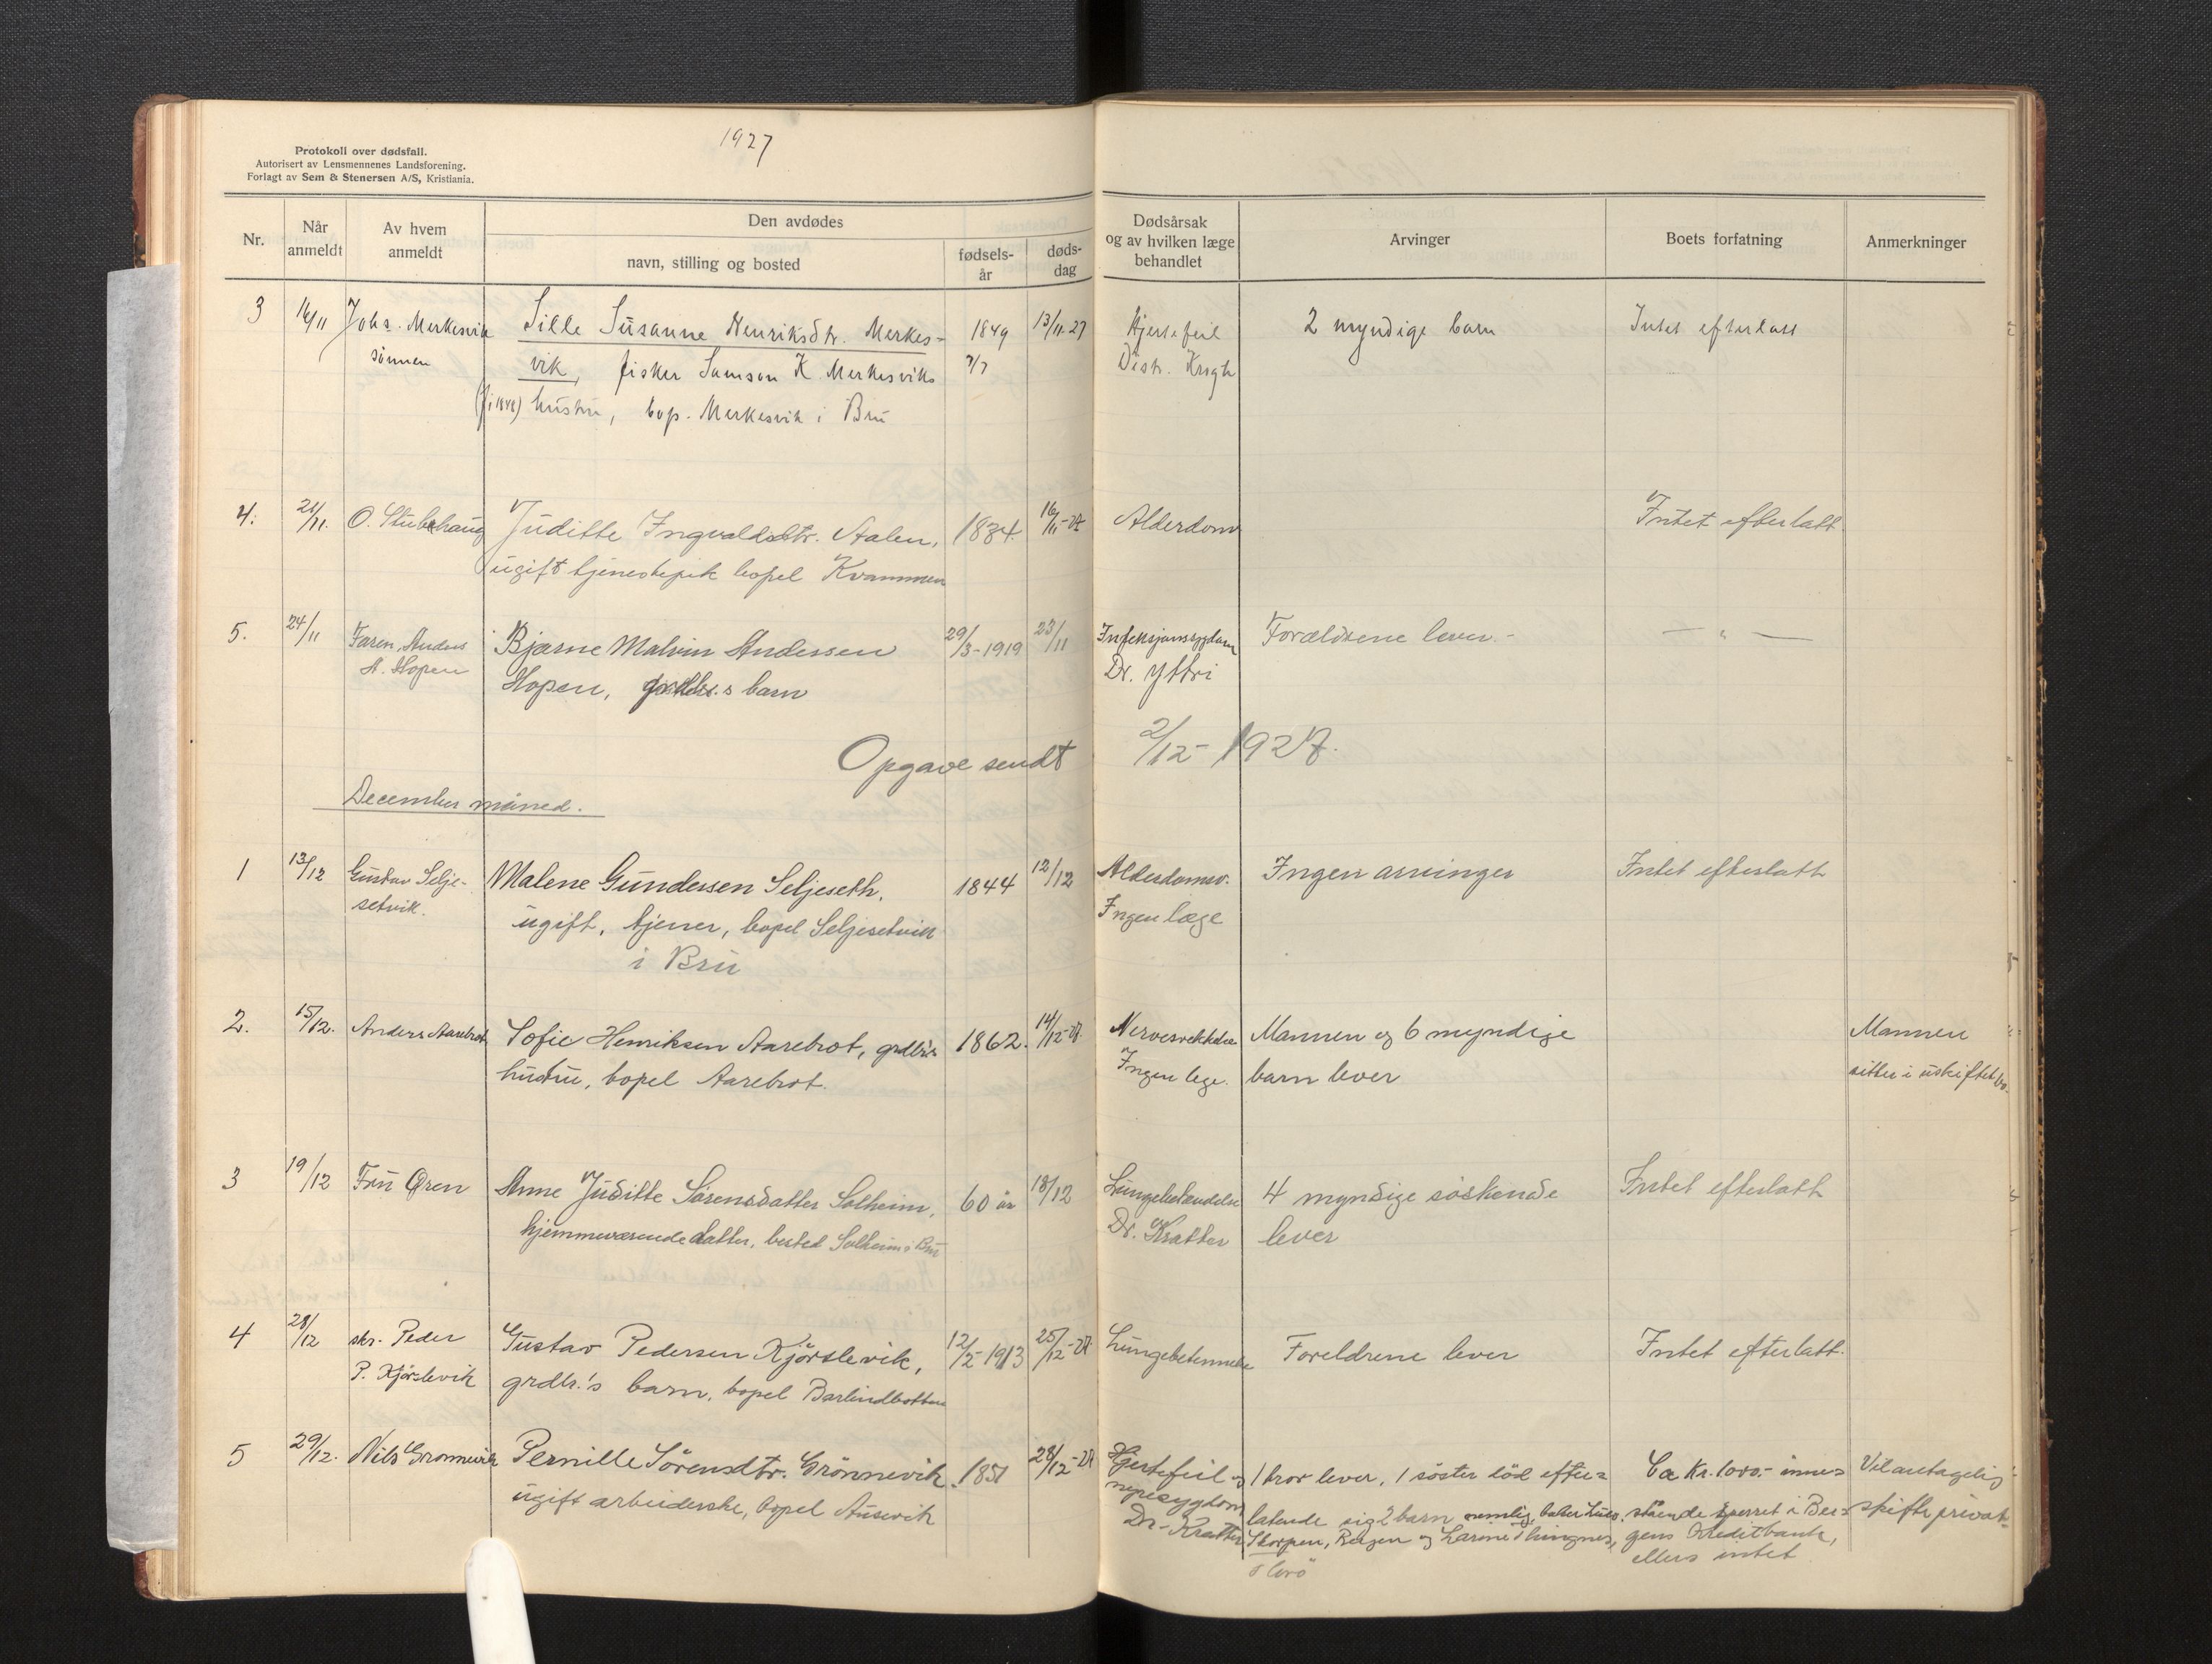 1927
Protokoll over dødsfall.
Autorisert av Lensmennenes Landsforening.
Forlagt av Sem & Stenersen A/S, Kristiania.
Nr.
Når anmeldt
Av hvem anmeldt
Den avdødes
navn, stilling og bosted
fødsels-år
døds-dag
Dødsårsak og av hvilken læge behandlet
Arvinger
Boets forfatning
Anmerkninger
3 16/11 Johs. Merkesvik Sille Susanne Henriksdtr. Merkes- 1849 13/11-27 Hjertefeil 2 myndige barn Intet efterlatt
sønnen vik, fisker Samson K. Merkesviks 7/7 Distr. Krogh
(f. i 1848) hustru, bop. Merkesvik i Bru
4. 21/11. O. Stubehaug Juditte Ingvaldsdtr. Aalen, 1834. 16/11-27 Alderdom Intet efterlatt.
ugift tjenestepik bopel Kvammen
5. 24/11 Faren, Anders Bjarne Malvin Andersen 29/3-1919 23/11 Infeksjonssygdom Forældrene lever.- — " —
A. Hopen Hopen, grdbr.s barn Dr. Yttri
Opgave sendt 2/12-1927.
December måned.
1 13/12 Gustav Selje- Malene Gundersen Seljeseth. 1844 12/12 Alderdomsv. Ingen arvinger Intet efterlatt
setvik. ugift, tjener, bopel Seljesetvik Ingen læge
i Bru
2. 15/12. Anders Aarebrot Sofie Henriksen Aarebrot, grdbr's 1862. 14/12-27. Nervesvekkelse Mannen og 6 myndige Mannen
hustru, bopel Aarebrot. Ingen lege. barn lever sitter i uskiftet bo.
3 19/12 Fru Øren Anne Juditte Sørensdatter Solheim, 60 år 18/12 Lungebetændelse 4 myndige søskende Intet efterlatt
hjemmeværende datter, bosted Solheim i Bru Dr. Kratter lever
4 28/12 skr. Peder Gustav Pedersen Kjørslevik, 12/2-1913 25/12-27 Lungebetennelse Foreldrene lever Intet efterlatt.
P. Kjørslevik grdbr.'s barn, bopel Barlindbotten
5 29/12. Nils Grønnevik Pernille Sörensdtr. Grönnevik. 1851 28/12-27 Hjertefeil og 1 bror lever, 1 søster död efter= Ca Kr. 1000.- inne= Vil antagelig
ugift arbeiderske, bopel Ausevik nyresygdom latende sig 2 barn nemlig, stående sperret i Ber= skifte privat.
Dr. Kratter Skorpen, Bergen og Larine gens Kreditbank,
ellers intet